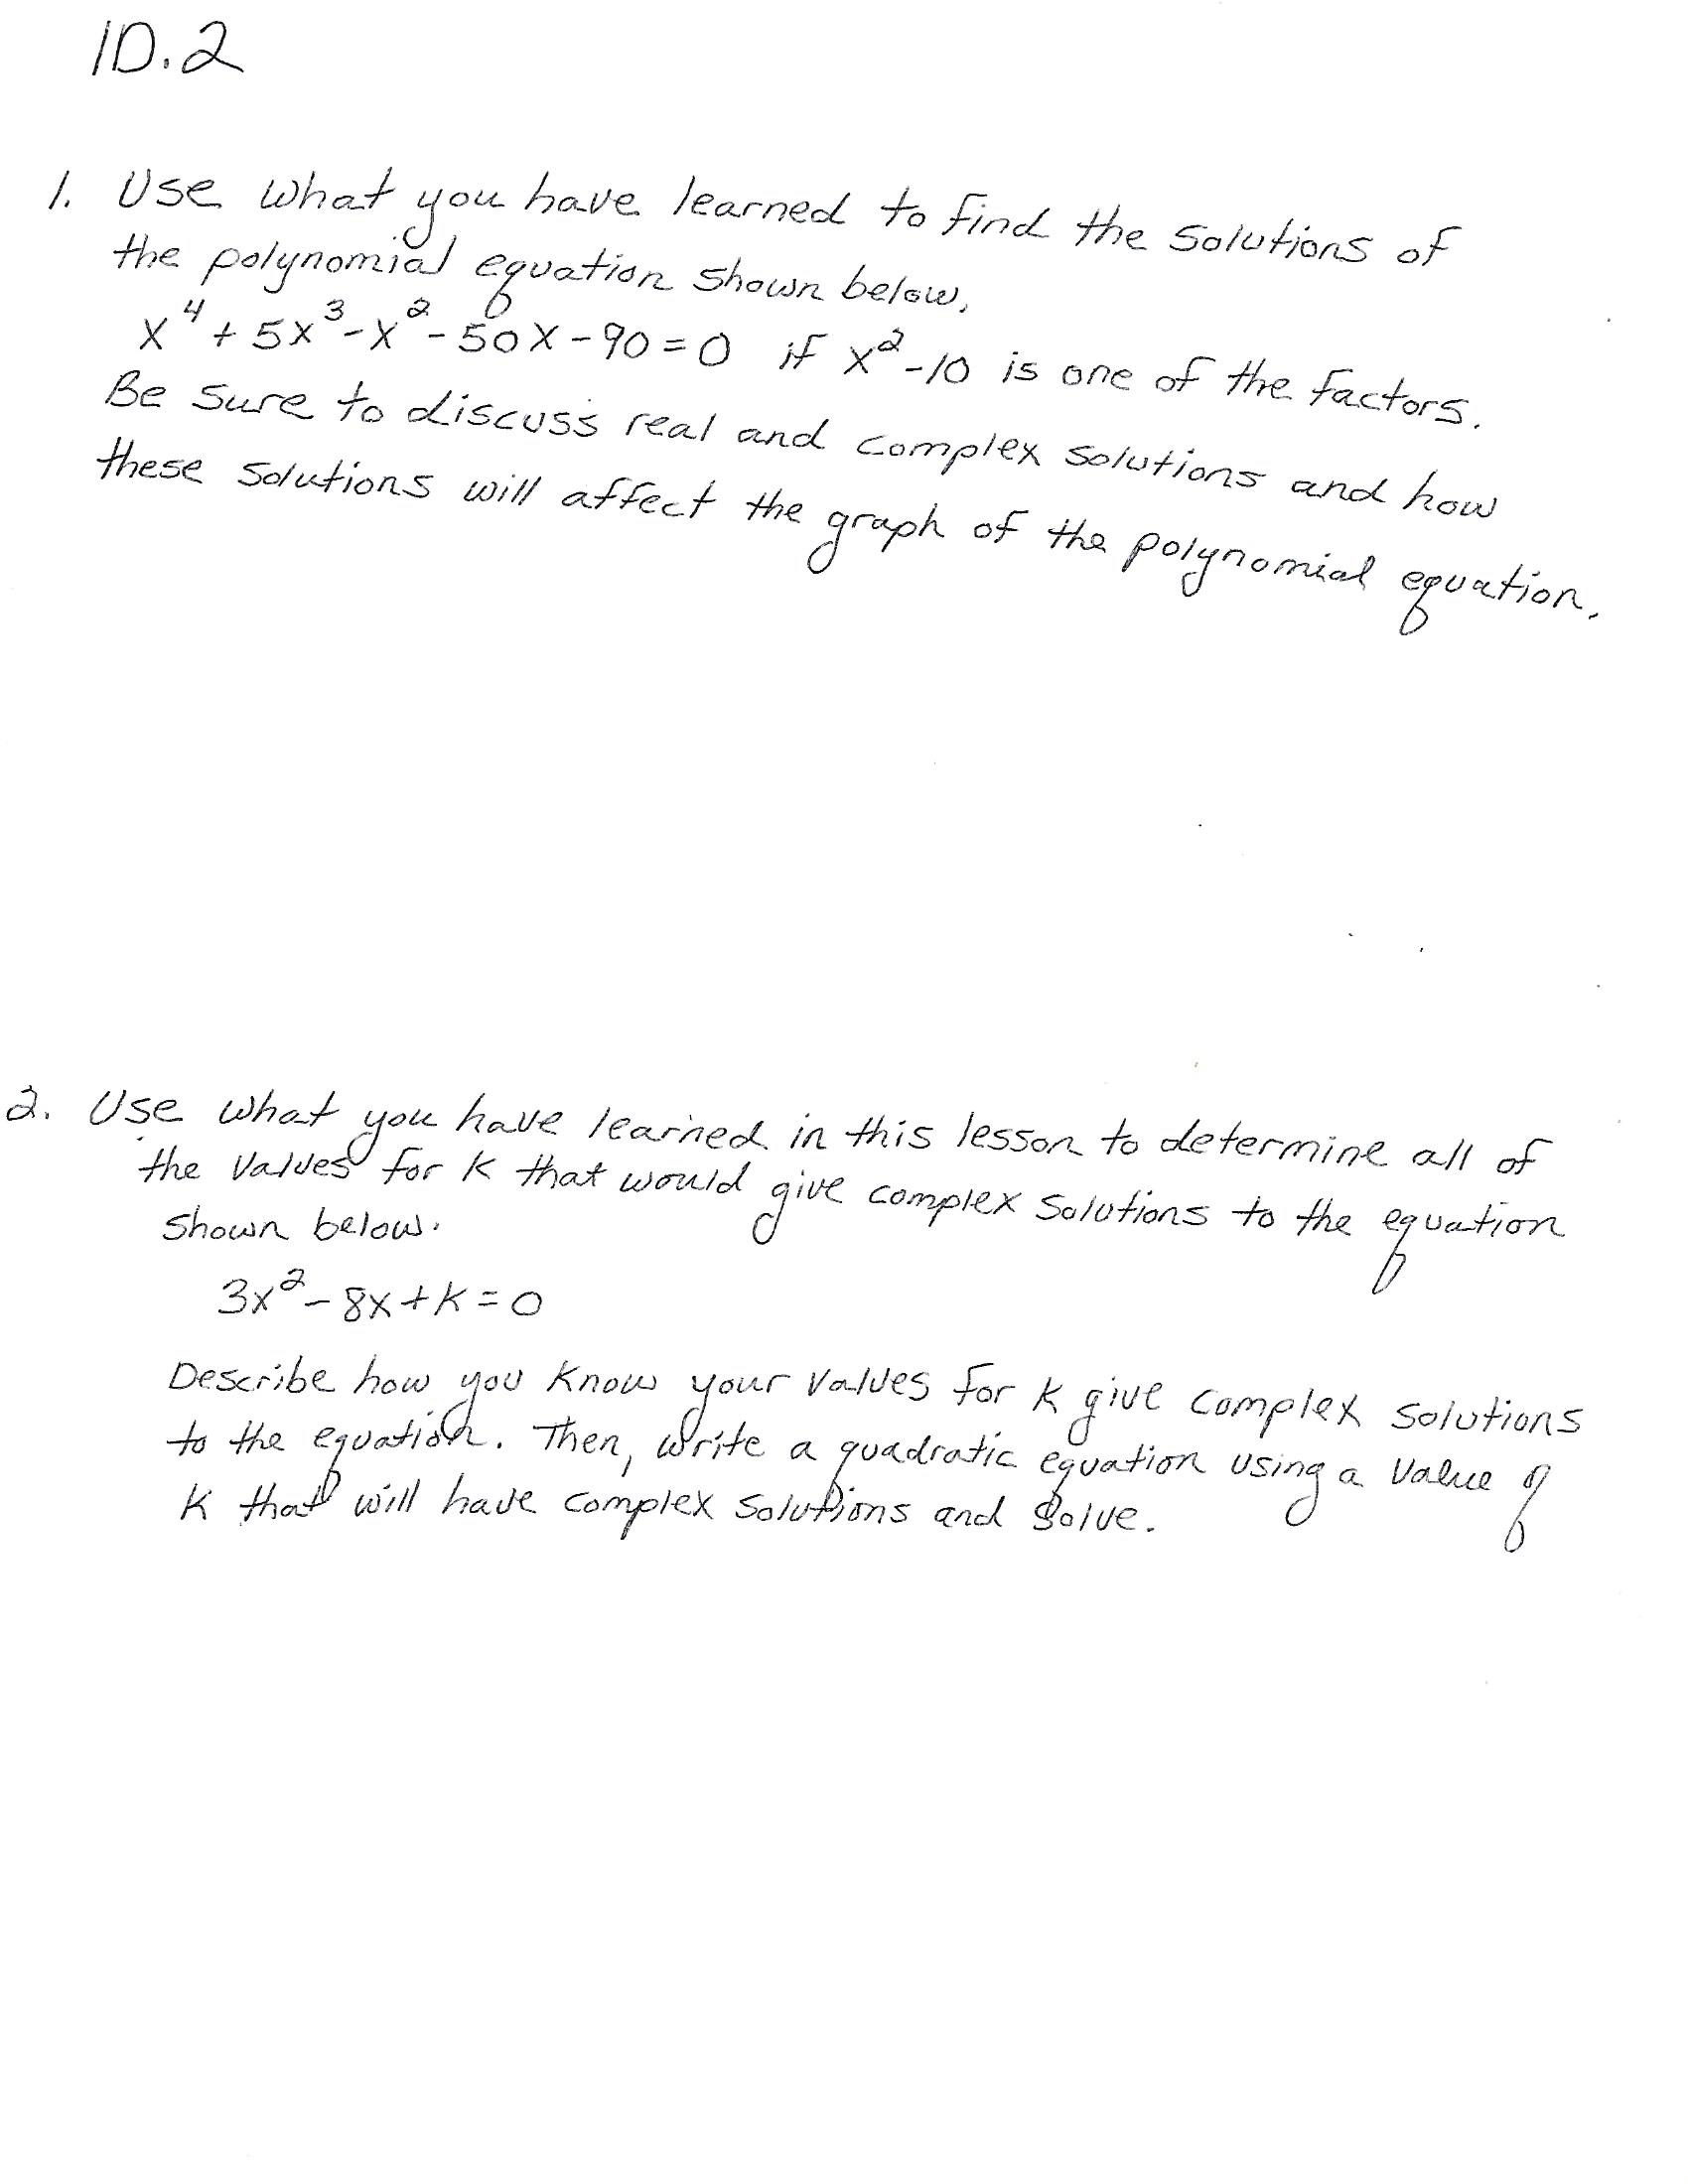 1D.2
1. Use what you have learned to find the solutions of
the polynomial equation shown below.
x⁴ + 5x³ - x² - 50x - 90 = 0 if x² - 10 is one of the factors.
Be sure to discuss real and complex solutions and how
these solutions will affect the graph of the polynomial equation.
2. Use what you have learned in this lesson to determine all of
the values for k that would give complex solutions to the equation
shown below.
3x² - 8x + k = 0
Describe how you know your values for k give complex solutions
to the equation. Then, write a quadratic equation using a value of
k that will have complex solutions and solve.